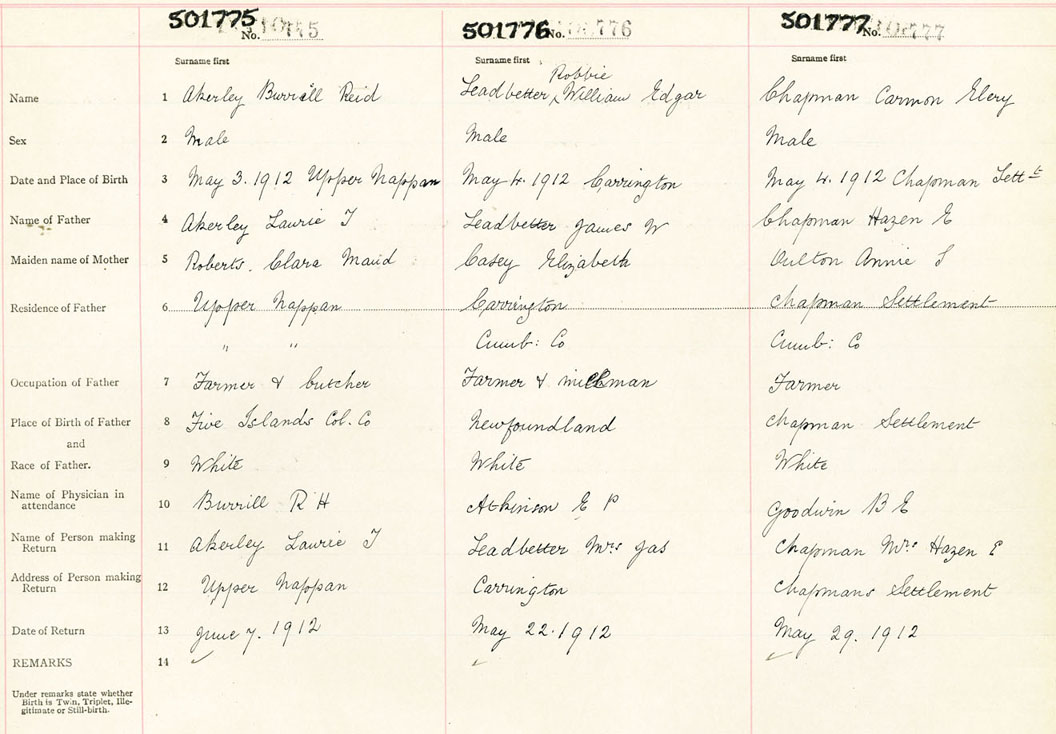 501775 No. 501776 No. 501777 No.
Surname first Surname first Robbie Surname first
Name 1 Akerley Burrill Reid Leadbetter ‸ William Edgar Chapman Carmon Elery
Sex 2 Male Male Male
Date and Place of Birth 3 May 3. 1912 Upper Nappan May 4. 1912 Carrington May 4. 1912 Chapman Sett
Name of Father 4 Akerley Laurie T Leadbetter James W Chapman Hazen E
Maiden name of Mother 5 Roberts. Clara Maud Casey Elizabeth Oulton Annie S
Residence of Father 6 Upper Nappan Carrington Chapman Settlement
" " Cumb: Co Cumb: Co
Occupation of Father 7 Farmer & butcher Farmer & milkman Farmer
Place of Birth of Father 8 Five Islands Col. Co Newfoundland Chapman Settlement
and
Race of Father. 9 White White White
Name of Physician in
attendance 10 Burrill R H Atkinson E P Goodwin B E
Name of Person making
Return 11 Akerley Laurie T Leadbetter Mrs Jas Chapman Mrs Hazen E
Address of Person making
Return 12 Upper Nappan Carrington Chapmans Settlement
Date of Return 13 June 7. 1912 May 22. 1912 May 29. 1912
REMARKS 14
Under remarks state whether
Birth is Twin, Triplet, Ille-
gitimate or Still-birth.